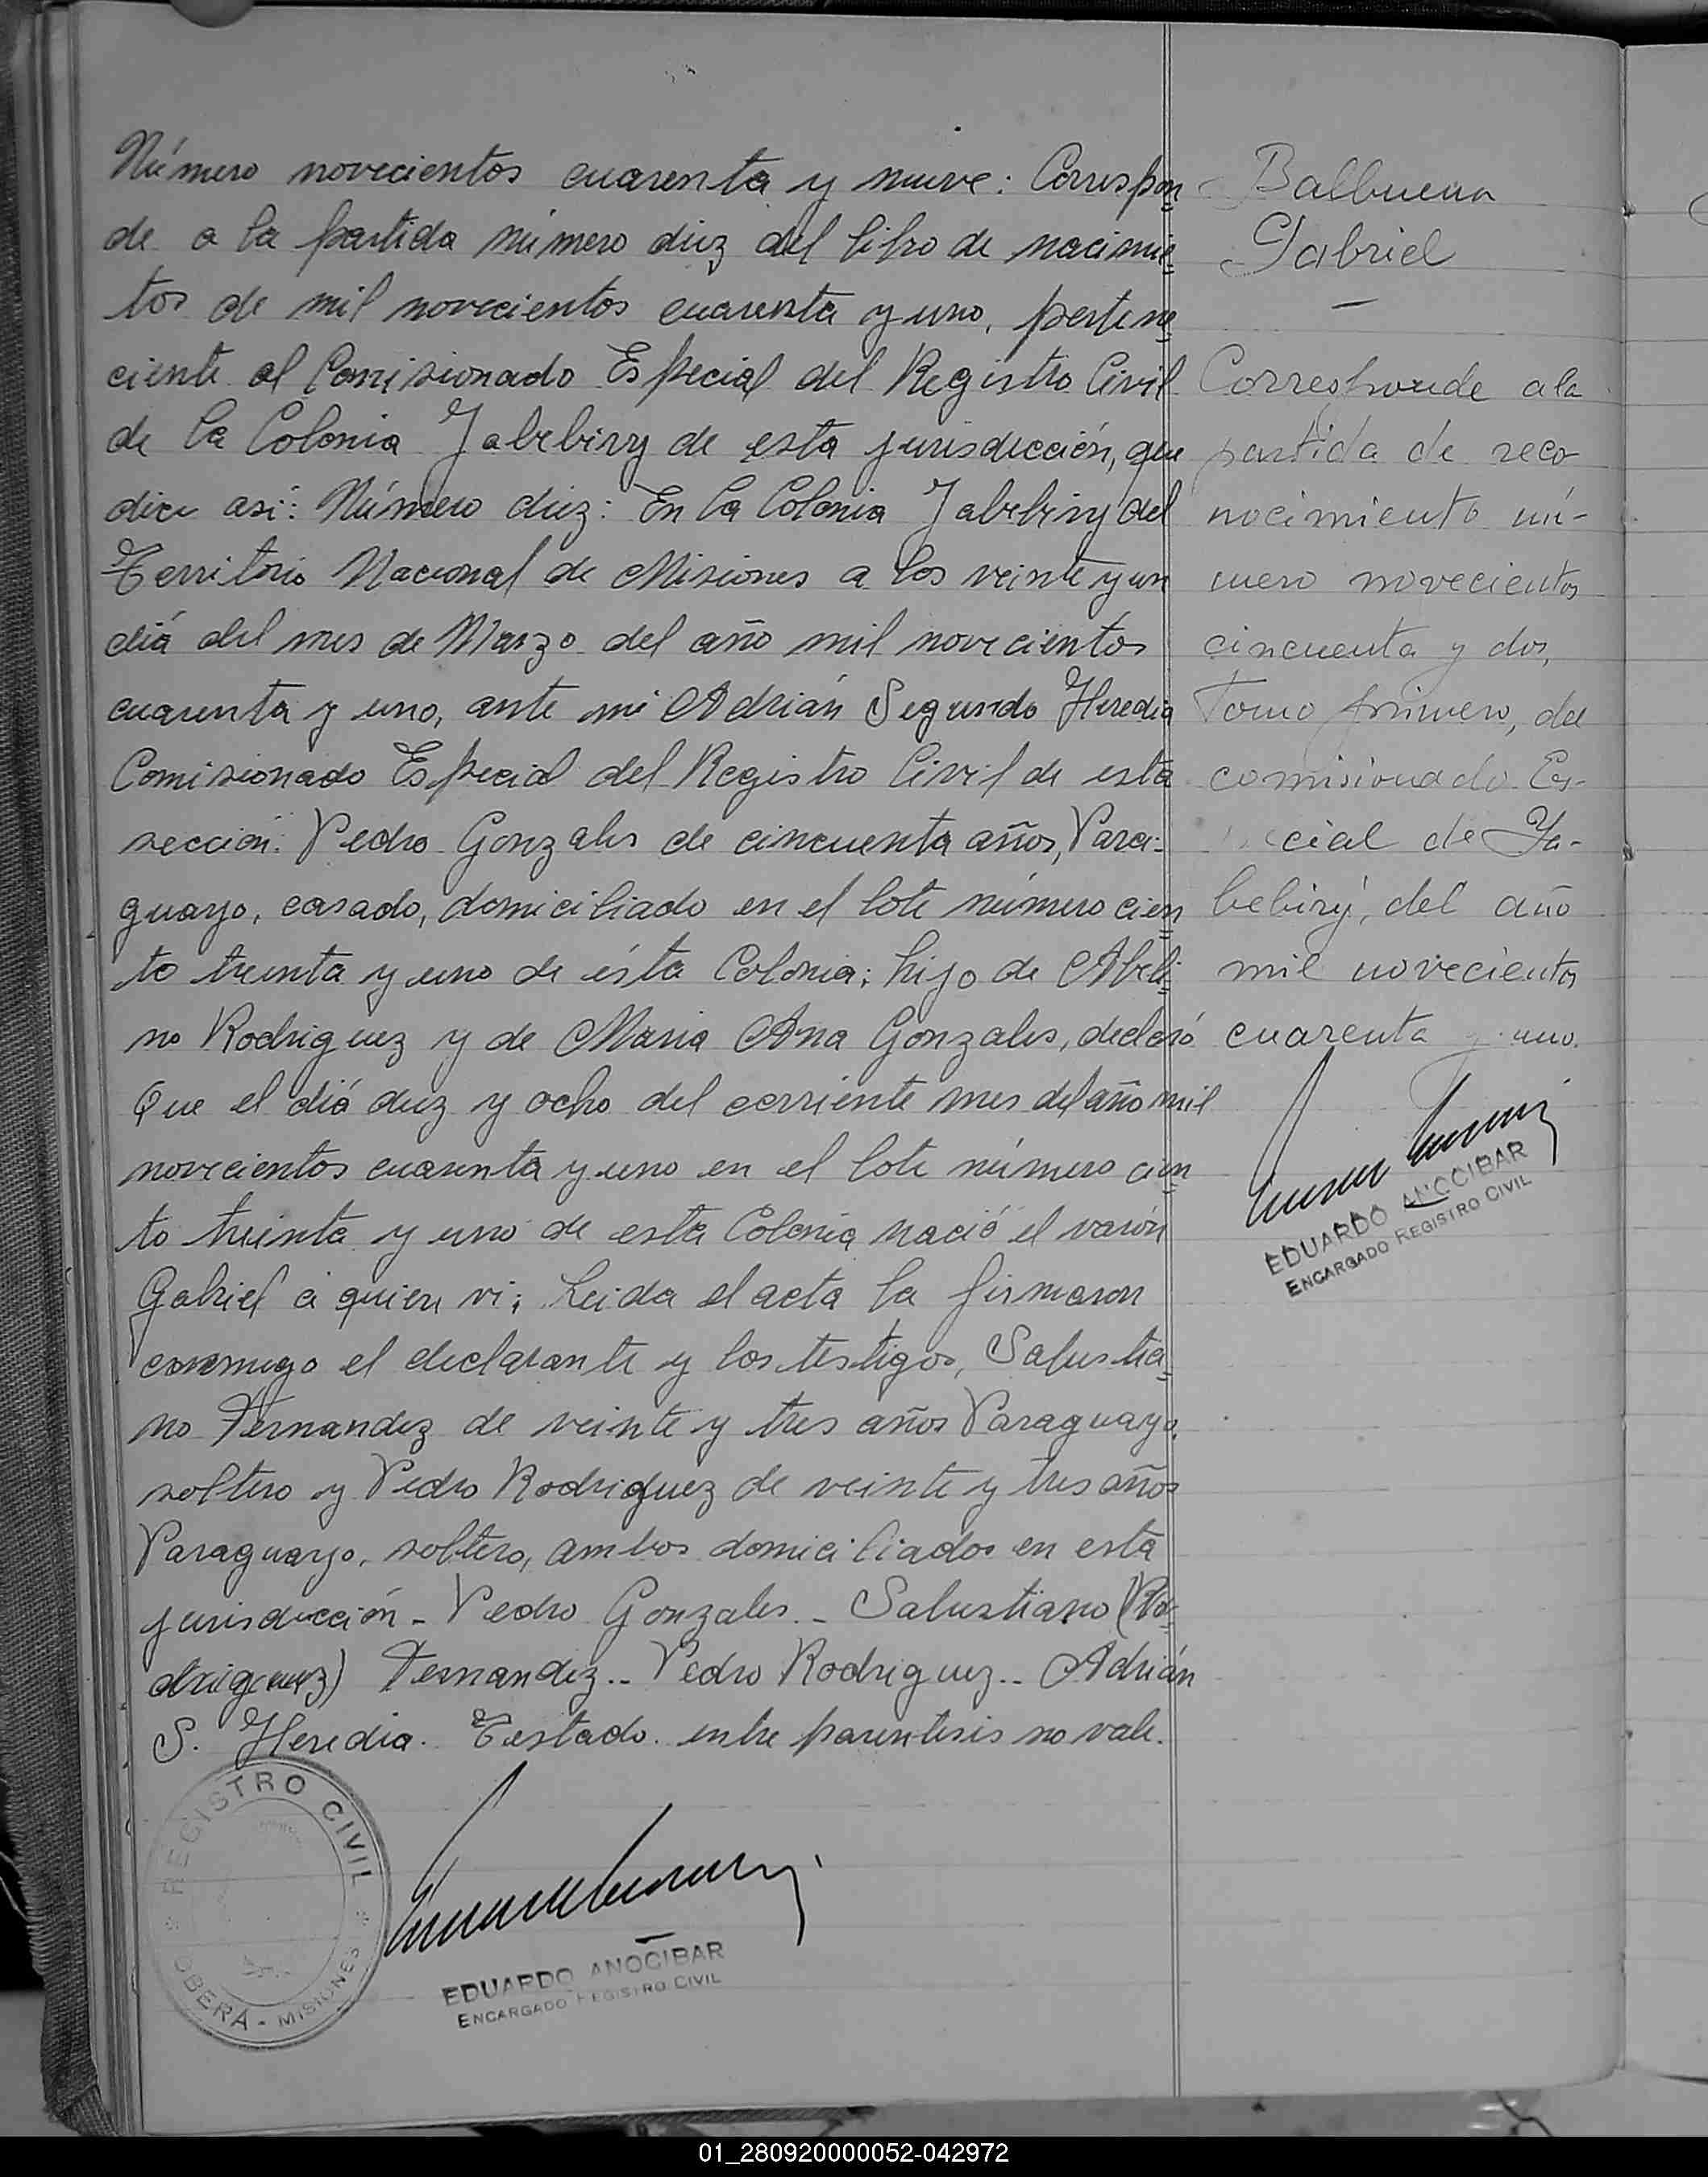 Número novecientos cuarenta y nueve: Correspon
de a la partida número diez del libro de nacimie
tos de mil novecientos cuarenta y uno, pertene
ciente al Comisionado Especial del Registro Civil
de la Colonia Jabebiry de esta jurisdicción, que
dice asi: Número diez: En la Colonia Jabebiry del
Territorio Nacional de Misiones a los veinte y un
diá del mes de Marzo del año mil novecientos
cuarenta y uno, ante mi Adrián Segundo Heredia
Comisionado Especial del Registro Civil de esta
sección: Pedro Gonzales de cincuenta años, Para-
guayo, casado, domiciliado en el lote número cien
to treinta y uno de ésta Colonia; hijo de Abeli
no Rodriguez y de Maria Ana Gonzales, declaró
Que el diá diez y ocho del corriente mes del año mil
novecientos cuarenta y uno en el lote número cien
to treinta y uno de esta Colonia nació el varón
Gabriel a quien vi; Leida el acta la firmaron
conmigo el declarante y los testigos, Salustia
no Fernandez de veinte y tres años Paraguayo,
soltero y Pedro Rodriguez de veinte y tres años
Paraguayo, soltero, ambos domiciliados en esta
jurisdicción - Pedro Gonzales - Salustiano (Ro-
driguez) Fernandez.- Pedro Rodriguez.- Adrián
S. Heredia. Testado entre parentesis no vale.
REGISTRO CIVIL
OBERA - MISIONES
EDUARDO ANOCIBAR
ENCARGADO REGISTRO CIVIL
Balbuena
Gabriel
Corresponde a la
partida de reco-
nocimiento nú-
mero novecientos
cincuenta y dos,
Tomo primero, del
comisionado Es-
cial de Ya-
bebiry, del año
mil novecientos
cuarenta y uno.
EDUARDO ANOCIBAR
ENCARGADO REGISTRO CIVIL
01_280920000052-042972